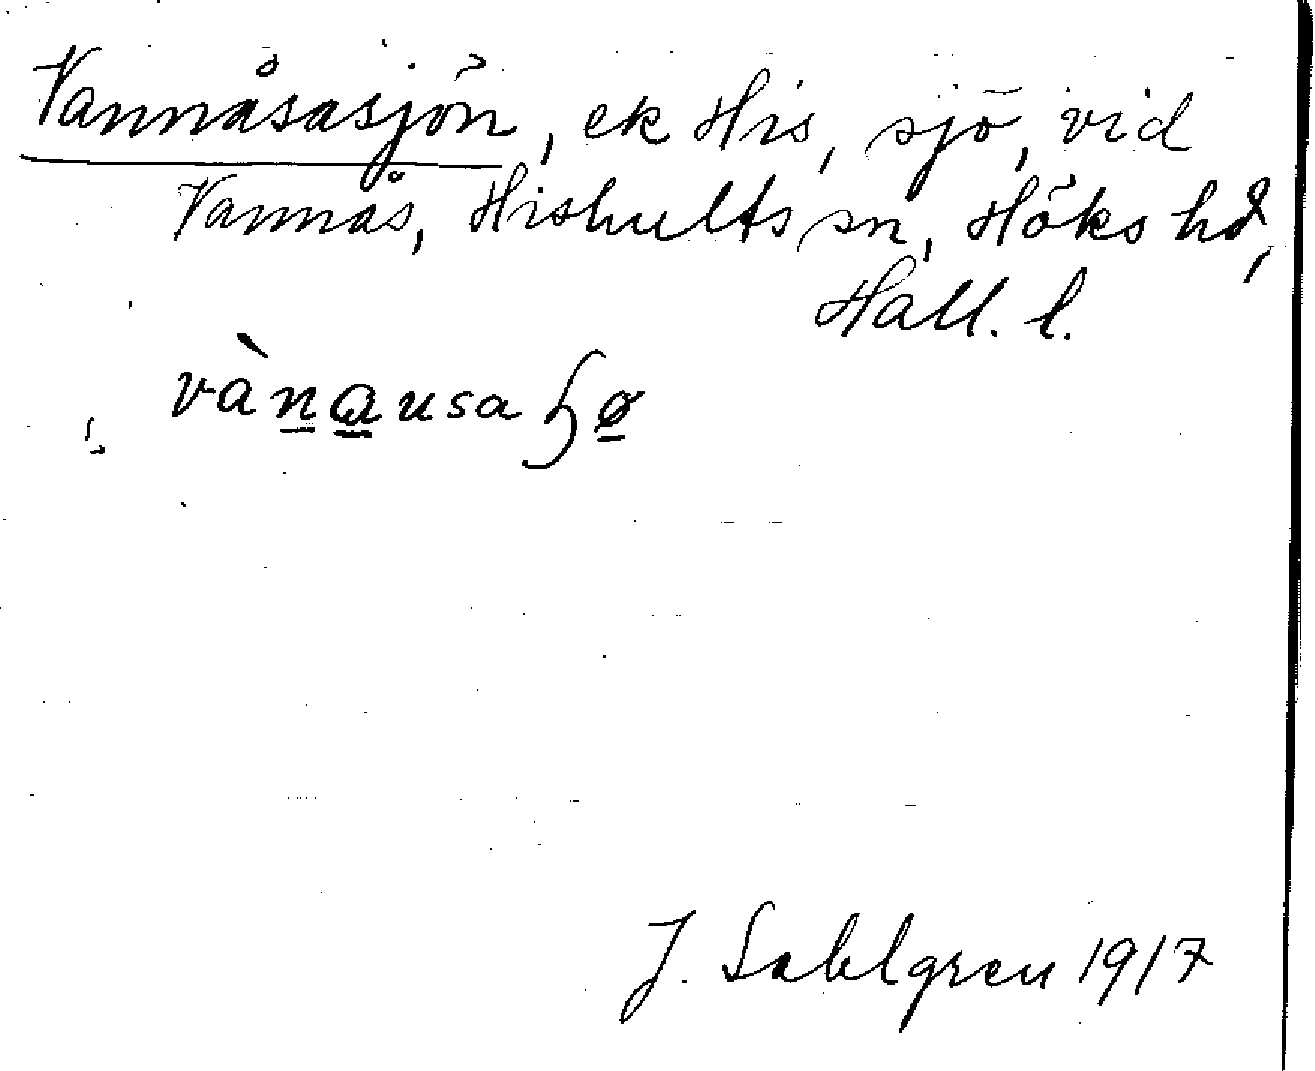 Vannåsasjön, ek His, sjö, vid
Vannås, Hishults sn, Höks hd,
Hall. l.
vànausa ɧø
J. Sahlgren 1917